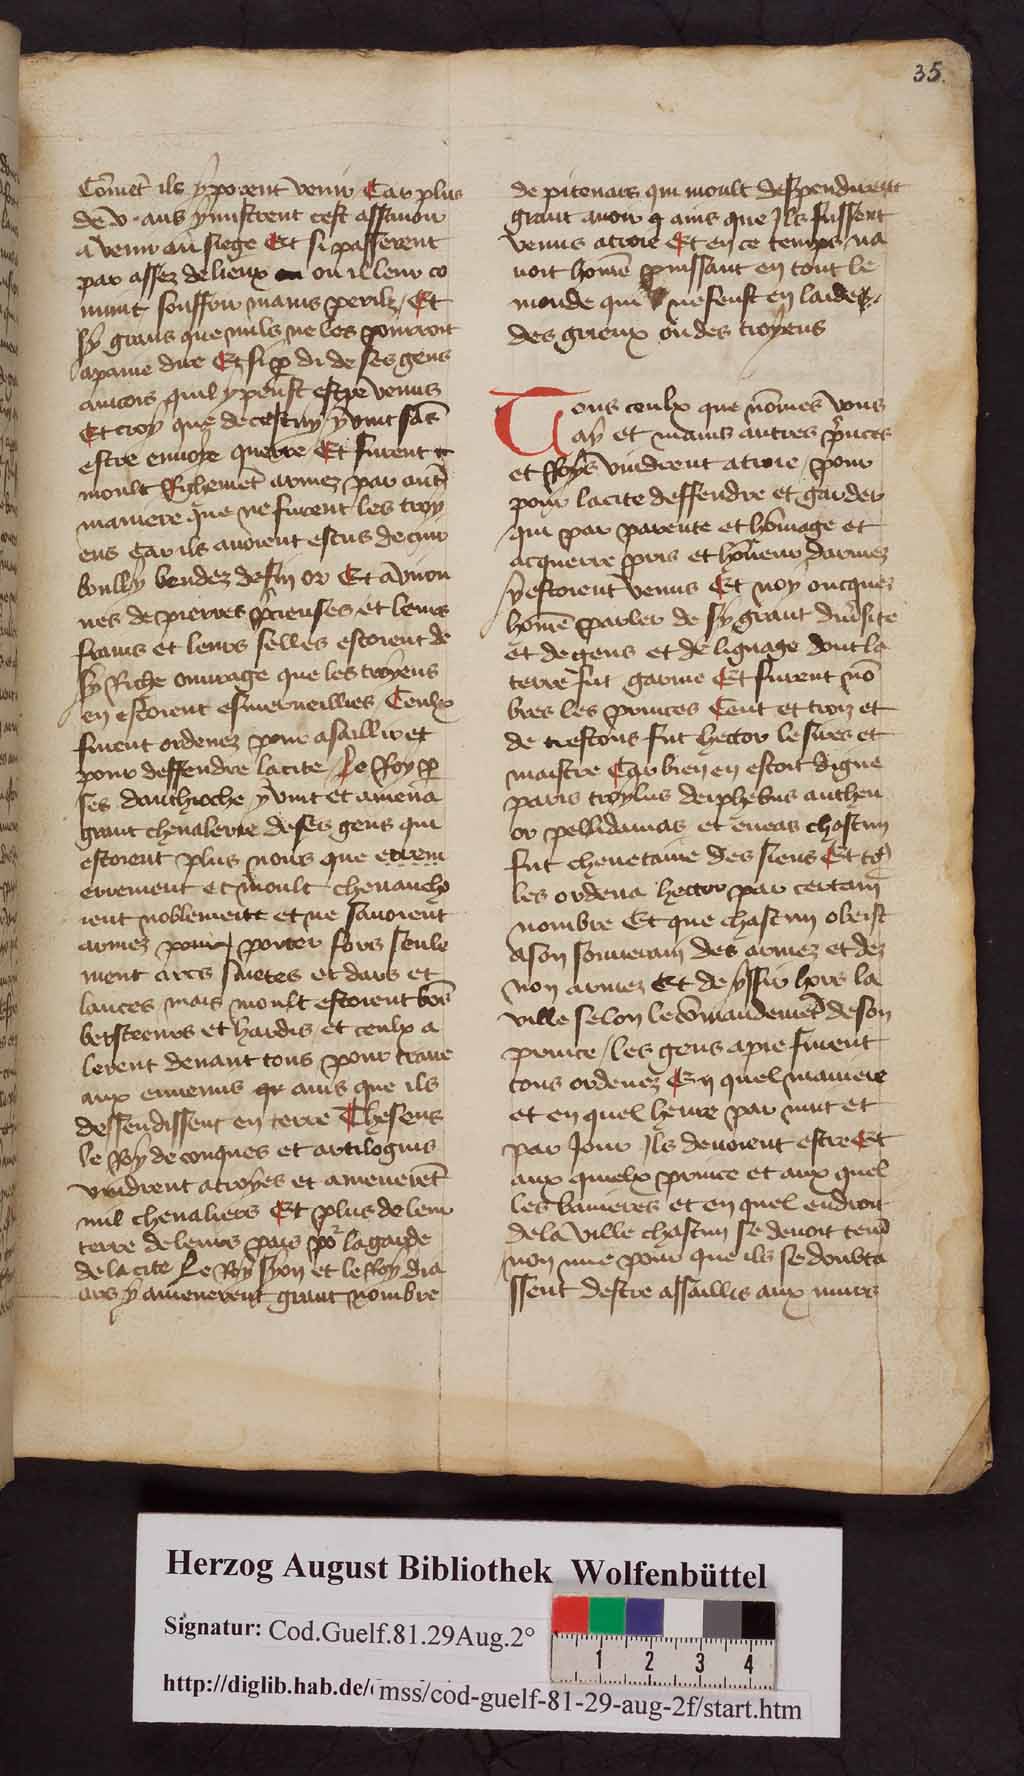 35.
Com̄et ils y porent venir Car plus
de v. ans y mistrent cest assauoir
a venir au siege Et si passerent
par assez de lieux ou il leur co
uint souffrir mains perilz / Et
sy grans que nulz ne les pourroit
apaine dire Et si ꝑdi de ses gens
aincois quil y peust estre venus
Et croy que de cestuy y vint sās
estre enuoye querre Et furent
moult Richemēt armez par autr̄
maniere que ne furent les troy
ens Car ils auoient escus de cuir
boully bendez de fin or Et auiron
nes de pierres p̄cieuses et leurs
frains et leurs selles estoient de
sy Riche ouurage que les troyens
en estoient esmerueillies Ceulx
furent ordenez pour asaillir et
pour deffendre la cite / Le Roy ꝑ
ses danthioche y vint et amena
grant cheualerie de ses gens qui
estoient plus noirs que errem
errement et moult cheuauch
ient noblement et ne sauoient
armez porter fors seule
ment arcs saietes et dars et
lances mais moult estoient bōs
et hardis et ceulx a
lerent deuant tous pour traire
aux ennemis ains que ils
deffendissent en terre Theseus
le Roy de conques et artilogius
vindrent a troyes et amenerēt
mil cheualiers Et plus de leur
terre de leurs pais po^r la garde
de la cite Le Roy syon et le Roy dra
ars y amenerent grant nombre
de pitenars qui moult despendirent
grant auoir ains que Ils fussent
venus a troie Et en ce temps na
uoit homē puissant en tout le
monde qui ne feust en laide
des grieux ou des troyens
Tous ceulx que nōmes vous
ay et mains autres p̄nces
et Roys vindrent a troie / pour
pour la cite deffendre et garder
qui par parente et hōmage et
acquerre pris et hōneur darmez
y estoient venus Et noy oncques
homē parler de sy grant diu̓site
et de gens et de lignage dont la
terre fut garnie Et furent nō
bres les princes Cent et troiz et
de trestous fut hector le sires et
maistre Car bien en estoit digne
paris troylus deiphebus anthen
or pellidamas et eneas chascun
fut cheuetaine des siens Et to^9
les ordena hector par certain
nombre Et que chascun obeist
a son souuerain des armez et dez
non armez Et de yssir hors la
ville selon le cōmandemēt de son
prince / les gens a pie furent
tous ordenez En quel maniere
et en quel heure par nuit et
par Jour Ils deuoient estre Et
aux quielx prince et aux quel
les banieres et en quel endroit
de la ville chascun se deuoit tenir
non mie pour que ils se doubta
ssent destre assaillis aux murs
Herzog August Bibliothek Wolfenbüttel
Signatur: Cod.Guelf.81.29Aug.2°
1 2 3 4
http://diglib.hab.de/mss/cod-guelf-81-29-aug-2f/start.htm